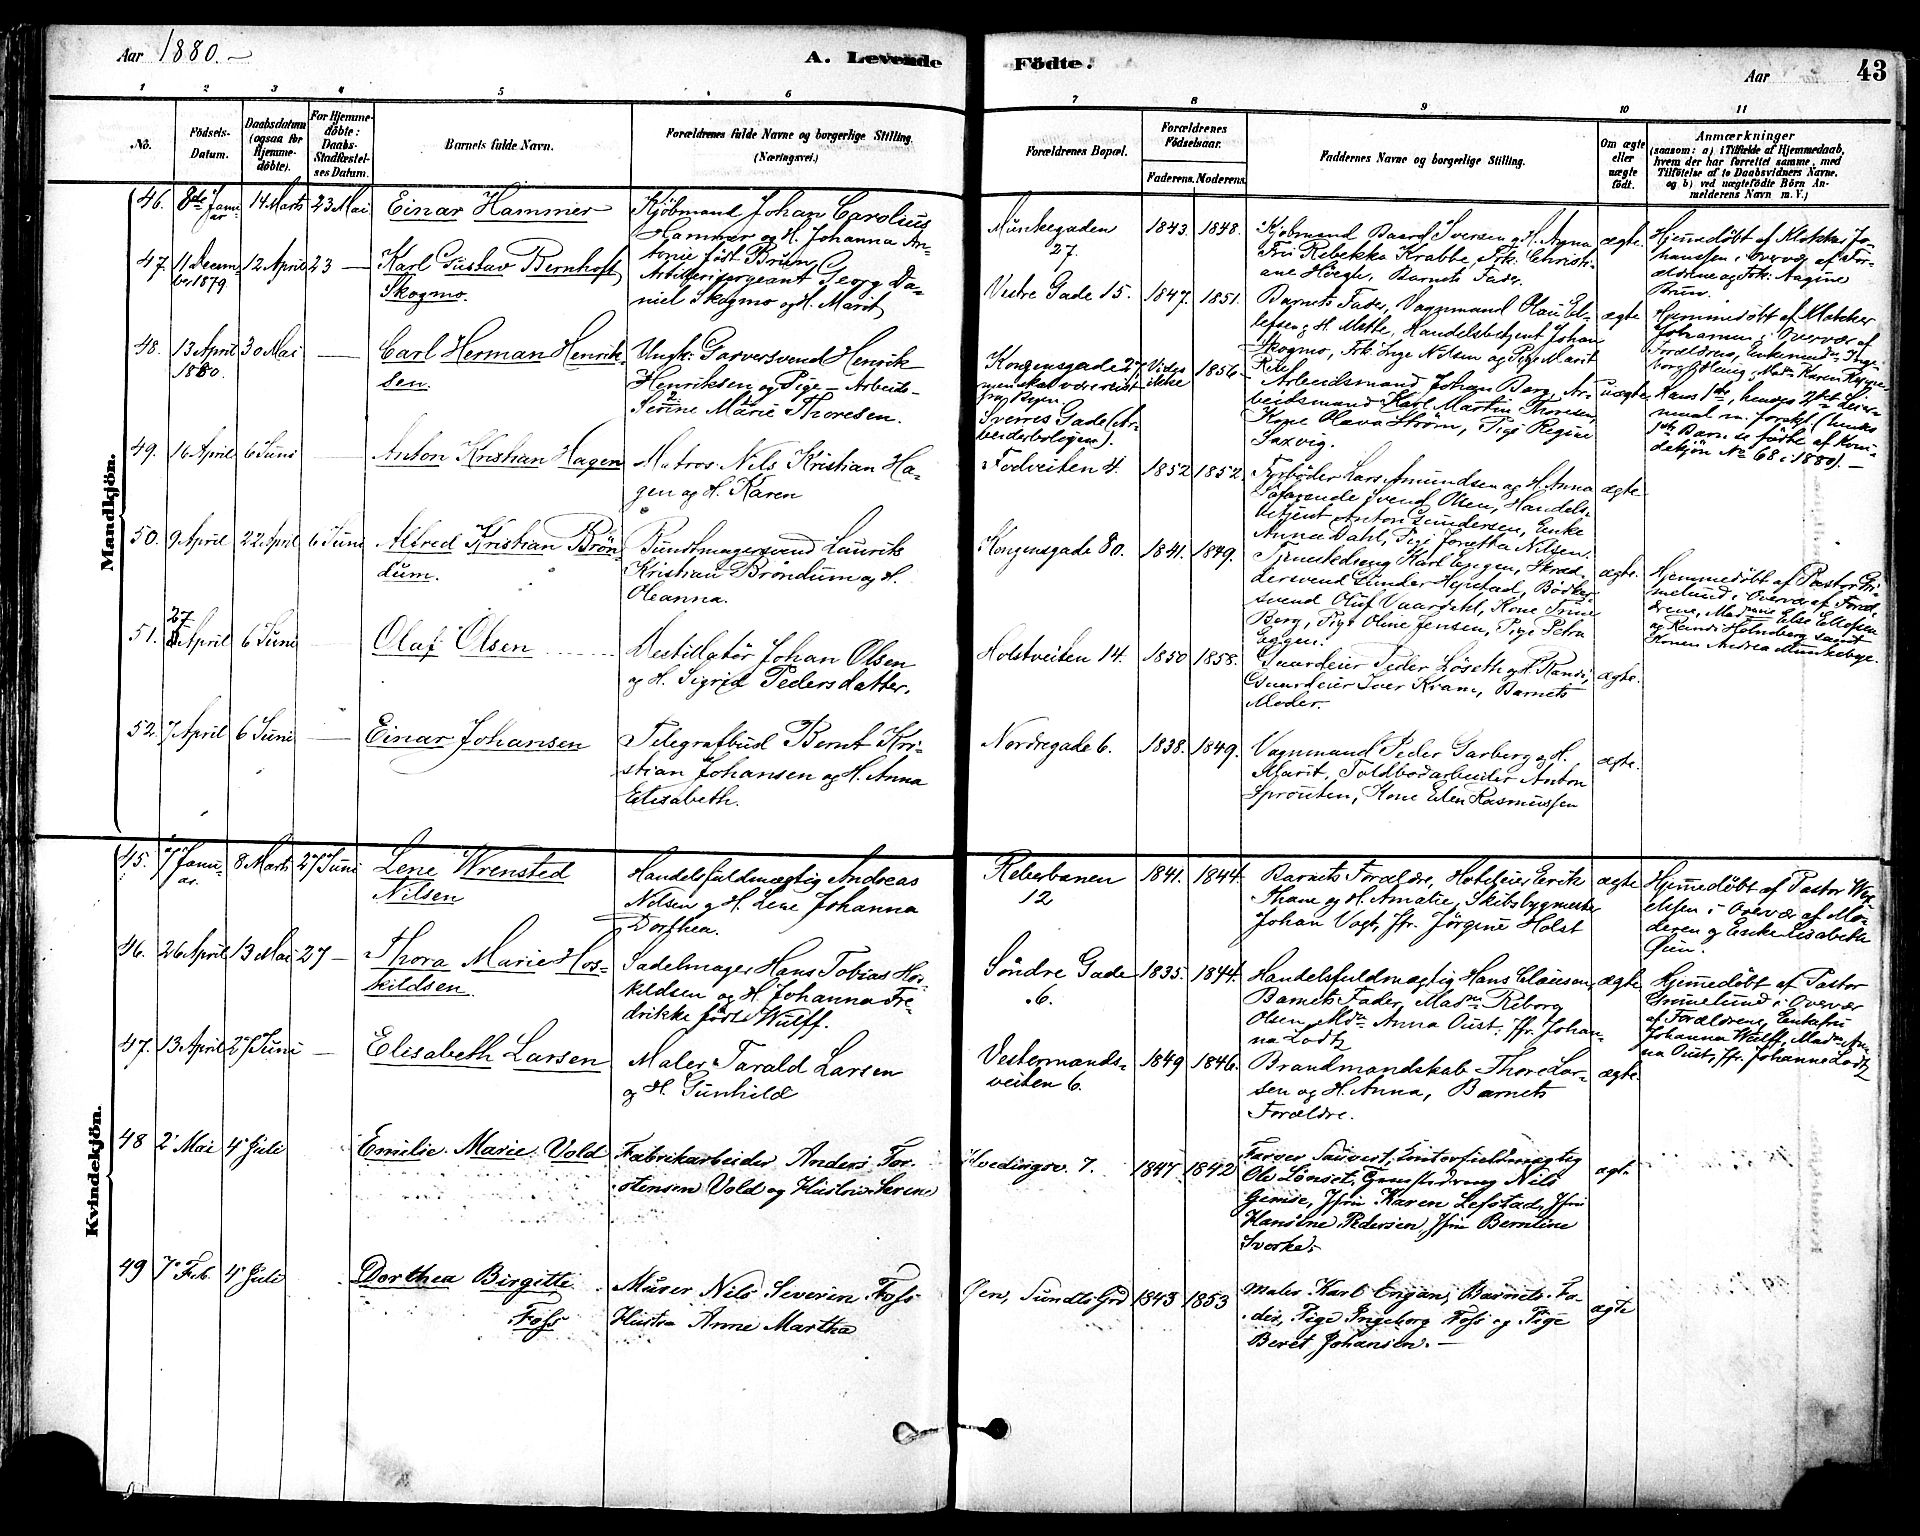 Aar 1880.
A. Levende Födte.
Aar
43
1 2 3 4 5 6 7 8 9 10 11
No.
Födsels-
Datum.
Daabsdatum
(ogsaa for
Hjemme-
döbte).
For Hjemme-
döbte:
Daabs-
Stadfæstel-
ses Datum.
Barnets fulde Navn.
Forældrenes fulde Navne og borgerlige Stilling.
(Næringsvei.)
Forældrenes Bopæl.
Forældrenes
Födselsaar.
Faderens. Moderens.
Faddernes Navne og borgerlige Stilling.
Om ægte
eller
uægte
födt.
Anmærkninger
(saasom: a) i Tilfælde af Hjemmedaab,
hvem der har forrettet samme, med
Tilföielse af to Daabsvidners Navne,
og b) ved uægtefödte Börn An-
melderens Navn m. V.)
Mandkjön.
46. 8de Janu-
ar 14 Marts 23 Mai Einar Hammer
Kjöbmand Johan Carolius
Hammer og H. Johanna An-
tonie födt Bruun
Munkegaden
27.
1843. 1848.
Kjöbmand Baard Iversen og H. Anna
Fru Rebekka Krabbe, Frk. Christi-
ane Höegh, Barnets Fader.
ægte.
Hjemmedöbt af Klokker Jo-
hanssen i Overvær af For-
ældrene og Frk. Aagine
Bruun.
47. 11 Decem-
ber 1879 12 April 23 — Karl Gustav Bernhoft
Skogmo.
Artillerisergeant Georg Da-
niel Skogmo og H. Marit
Vestre Gade 15. 1847. 1851.
Barnets Fader, Vognmand Olau El-
lefsen og H. Mette, Handelsbetjent Johan
Skogmo, Frk. Inge Nilsen og Pige Marit
ægte
Hjemmedöbt af Klokker
Johansen i Overvær af
Forældrene,
48. 13 April
1880. 30 Mai — Carl Herman Henrik-
sen.
Ungk. Garversvend Henrik
Henriksen og Pige – Arbeids-
Serine Marie Thoresen.
Kongensgade 27,
men skal være reist
fra Byen.
Sverres Gade (Ar-
beiderboligen).
1856.
Arbeidsmand Johan Berg, Ar-
beidsmand Karl Martin Thoresen,
Kone Olava Ström, Pige Regine
Saxvig.
uægte
Hans 1ste, hendes 2det Leier-
maal m. forskj. (hendes
1ste Barn se födte af Kvin-
dekjön No 68 i 1880). —
49. 16 April 6 Juni — Anton Kristian Hagen
Matros Nils Kristian Ha-
gen og H. Karen
Fodveiten 4. 1852 1852.
Fyrböder Lars Amundsen og H. Anna
Söfarende Svend Olsen, Handels-
betjent Anton Gundersen, Enke
Anna Dahl, Pige Joretta Nilsen.
ægte.
50. 9 April 22 April 6 Juni Alfred Kristian Brön-
dum.
Bundtmagersvend Laurits
Kristian Bröndum og H.
Oleanna.
Kongensgade 80. 1841. 1849.
Tjenestedreng Karl Eggen, Skræd-
dersvend Gunder Hepstad, Bödker-
svend Oluf Vaardahl, Kone Trine
Berg, Pige Oline Jensen, Pige Petra
Eggen.
ægte.
Hjemmedöbt af Pastor Gri-
melund i Overvær af Foræl-
drene, Madme Else Ellefsen
og Randi Holmberg samt
Konen Andrea Munkebye.
51. 27
April 6 Juni — Olaf Olsen
Destillatör Johan Olsen
og H. Sigrid Pedersdatter.
Holstveiten 14. 1850 1858.
Gaardeier Peder Löseth og H. Randi,
Gaardeier Iver Kran, Barnets
Moder.
ægte.
52. 7 April 6 Juni — Einar Johansen
Telegrafbud Bernt Kri-
stian Johansen og H. Anna
Elisabeth.
Nordregade 6. 1838. 1849.
Vognmand Peder Garberg og H.
Marit, Toldbodarbeider Anton
Sprouten, Kone Elen Rasmussen
ægte.
Kvindekjön.
45. 7 Janu-
ar. 8 Marts 27 Juni Lene Wrensted
Nilsen
Handelsfuldmægtig Andreas
Nilsen og H. Lene Johanna
Dorthea.
Reberbanen
12
1841. 1844.
Barnets Forældre, Hoteleier Eerik
Thane og H. Amalie, Skibsbygmester
Johan Vogt, Jfr. Jörgine Holst
ægte
Hjemmedöbt af Pastor Wex-
elsen i Overvær af Mo-
deren og Enke Elisabeth
46. 26 April 13 Mai 27 — Thora Marie Hos-
kildsen.
Sadelmager Hans Tobias Ho-
skildsen og H. Johanna Fre-
drikke födt Wulff.
Söndre Gade
6.
1835. 1844.
Handelsfuldmægtig Hans Clausen,
Barnets Fader, Madm Reborg
Olsen, Mdm Anna Oust, Jfr. Johan-
na Lodtz
ægte
Hjemmedöbt af Pastor
Grimelund i Overvær
af Forældrene, Enkefru
Johanna Wulff, Madm An-
na Oust, Jfr. Johanne Lodtz
47. 13 April 27 Juni — Elisabeth Larsen
Maler Tarald Larsen
og H. Gunhild
Vestermands-
veiten 6.
1849 1846.
Brandmandskab Thore Lar-
sen og H. Anna, Barnets
Forældre.
ægte.
48 2 Mai 4 Juli Emilie Marie Vold
Fabrikarbeider Anders Tor-
stensen Vold og Hustru Serene
Hvedingsv. 7. 1847 1842
Farver Sauvest, Kontorfuldmægtig
Ole Lönset, Nils
Gimse, Jfru Karen Lefstad, Jfru
Hansine Pedersen, Jfru Berntine
Sverke.
ægte
49 7 Feb. 4 Juli Dorthea Birgitte
Foss
Murer Nils Severin Foss
Hustru Anne Martha
Öen, Sundts Grd 1843 1853
Maler Karl Engan, Barnets Fa-
der, Pige Ingeborg Foss og Pige
Beret Johansen. —
ægte